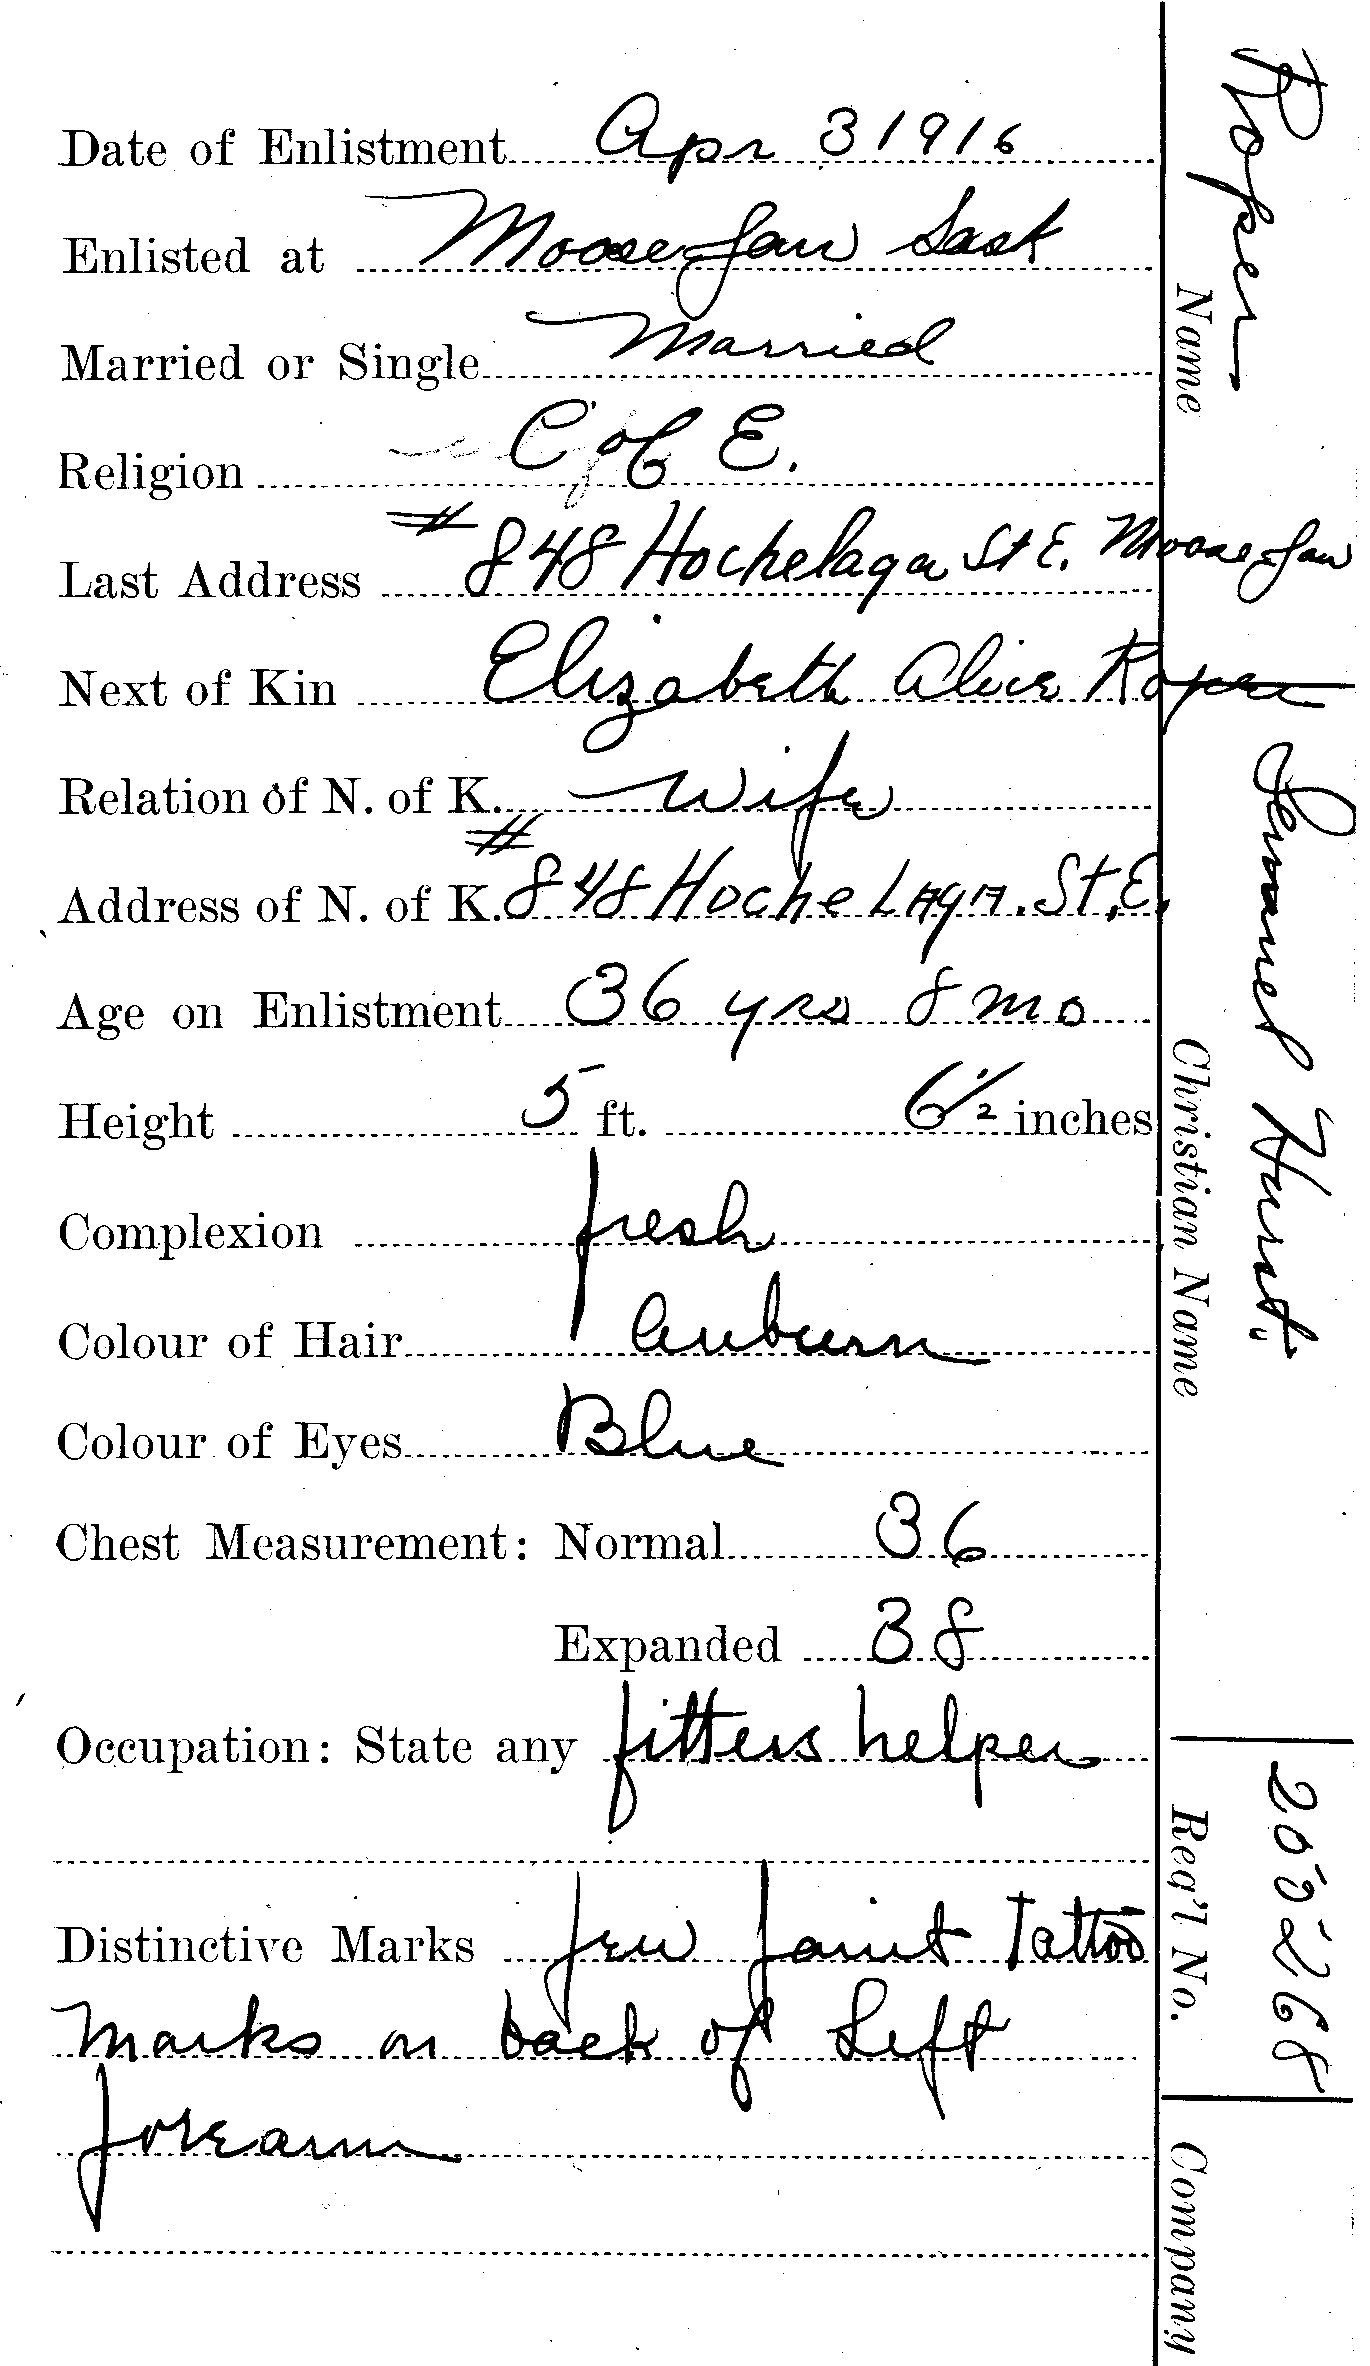 Date of Enlistment Apr 3 1916
Enlisted at Moose Jaw Sask
Married or Single Married
Religion C of E.
Last Address # 848 Hochelaga St E. Moose Jaw
Next of Kin Elizabeth Alice Roper
Relation of N. of K. Wife
Address of N. of K. # 848 Hochelaga. St. E.
Age on Enlistment 36 yrs 8 mo
Height 5 ft. 6 1/2 inches
Complexion fresh
Colour of Hair Auburn
Colour of Eyes Blue
Chest Measurement: Normal 36
Expanded 38
Occupation: State any fitters helper
Distinctive Marks few faint Tattoo
Marks on back of Left
forearm
Roper
Name
Hurst.
Christian Name
200268
Reg'l No.
Company